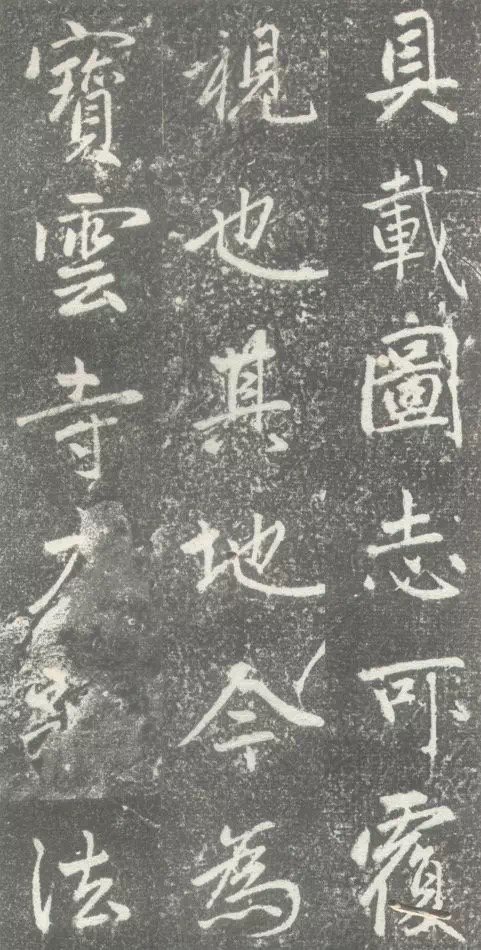 具載圖志可覆
視也其地今為
寶雲寺法